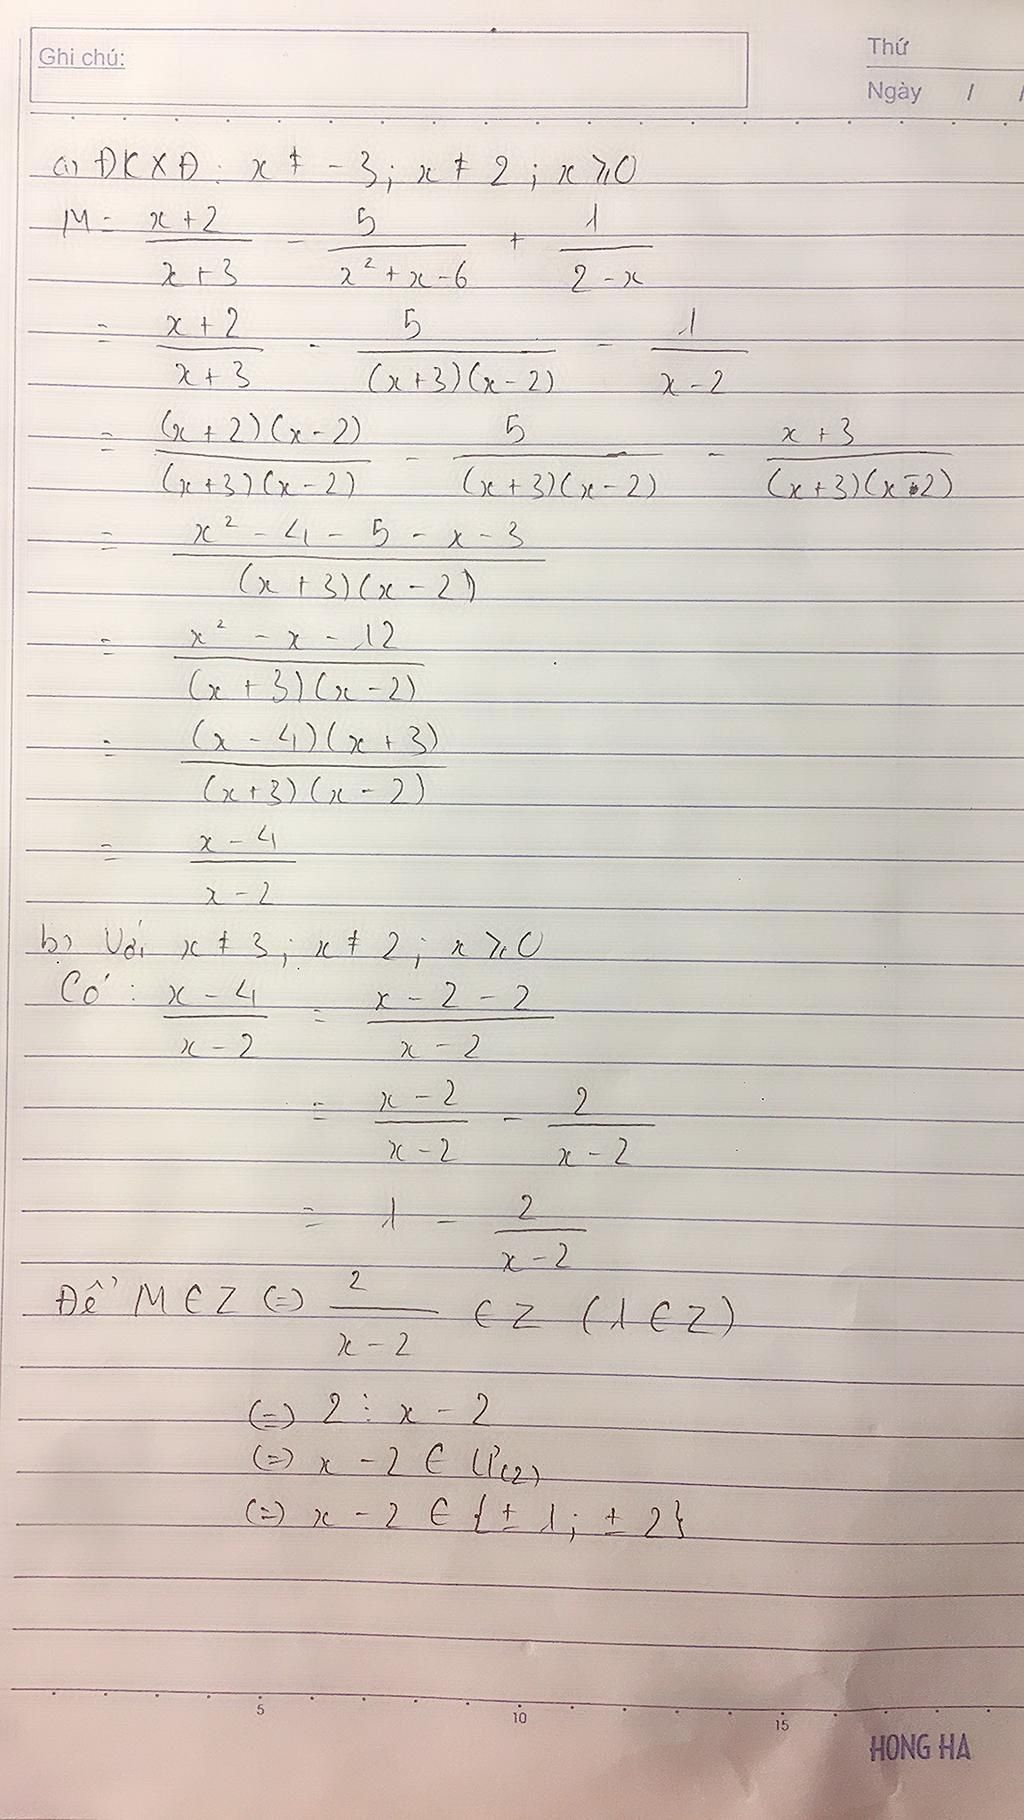 Ghi chú:
Thứ
Ngày / /
a) ĐKXĐ: x ≠ -3; x ≠ 2; x ≥ 0
M = (x+2)/(x+3) - 5/(x² + x - 6) + 1/(2-x)
= (x+2)/(x+3) - 5/((x+3)(x-2)) - 1/(x-2)
= ((x+2)(x-2))/((x+3)(x-2)) - 5/((x+3)(x-2)) - (x+3)/((x+3)(x-2))
= (x² - 4 - 5 - x - 3)/((x+3)(x-2))
= (x² - x - 12)/((x+3)(x-2))
= ((x-4)(x+3))/((x+3)(x-2))
= (x-4)/(x-2)
b) Với x ≠ 3; x ≠ 2; x ≥ 0
Có: (x-4)/(x-2) = (x-2-2)/(x-2)
= (x-2)/(x-2) - 2/(x-2)
= 1 - 2/(x-2)
Để M ∈ Z (=) 2/(x-2) ∈ Z (1 ∈ Z)
(=) 2 ⋮ x - 2
(=) x - 2 ∈ Ư(2)
(=) x - 2 ∈ {± 1; ± 2}
5 10 15
HONG HA